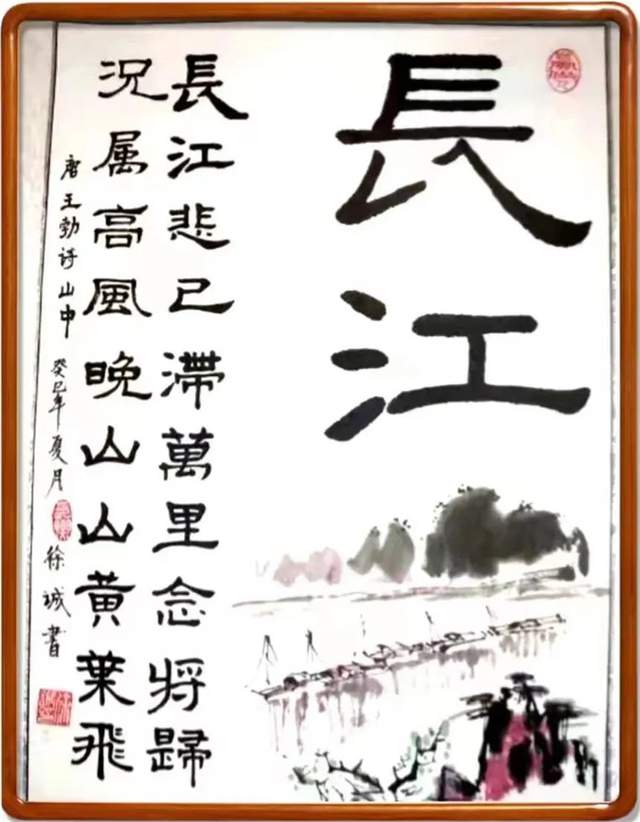 長江
長江悲已滯萬里念将歸
況属高風晚山山黃葉飛
唐王勃诗山中 癸巳年夏月 徐诚書